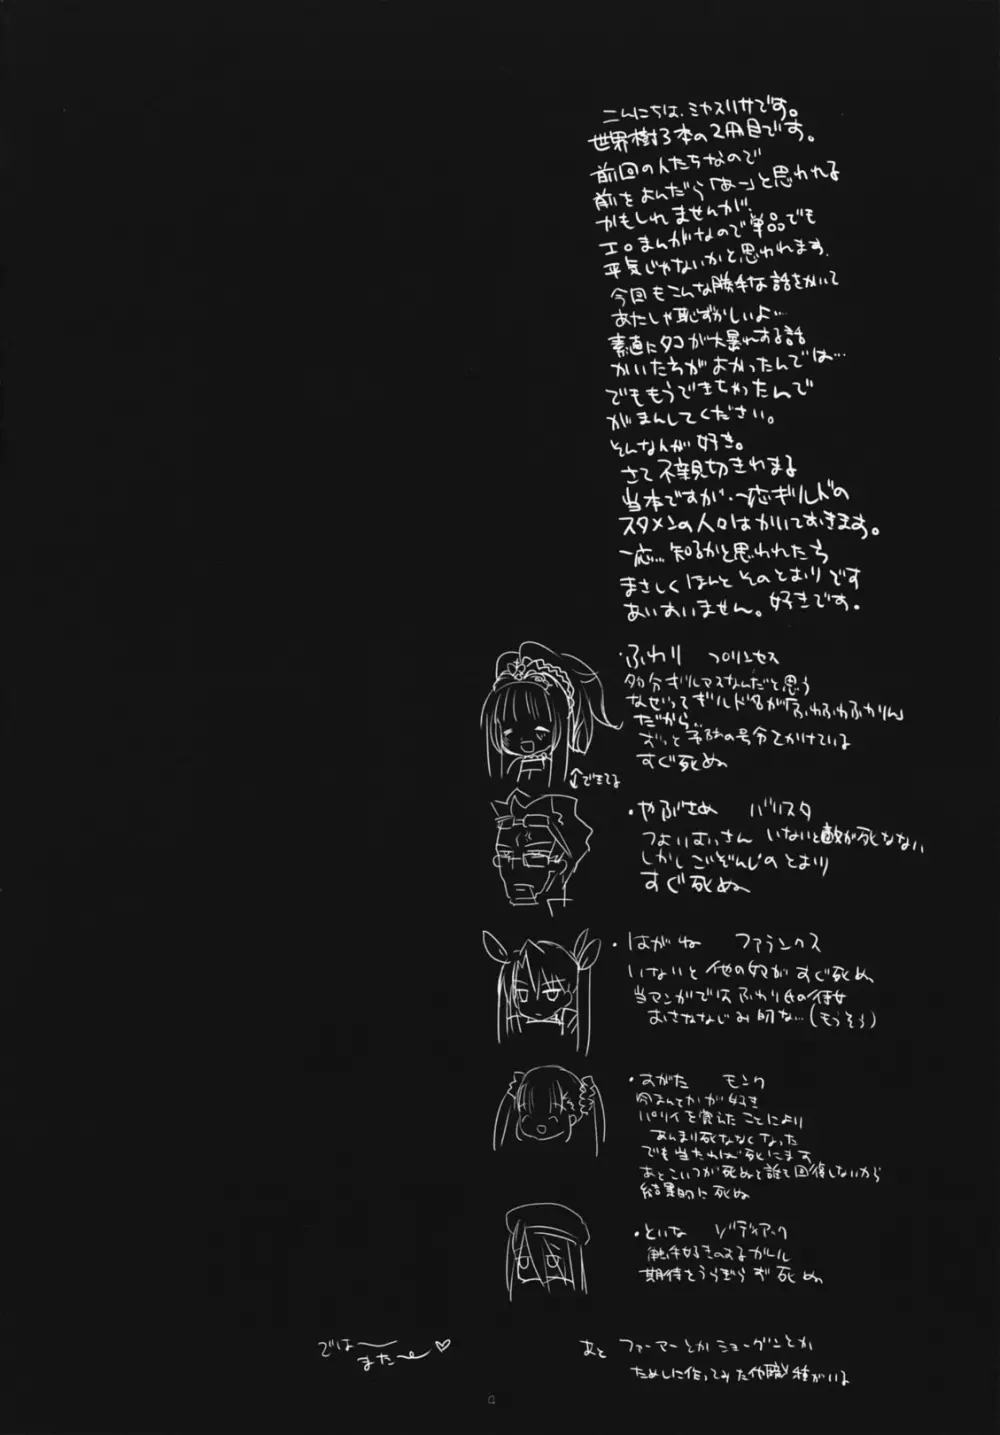 こんにちは、ミヤスリサです。
世界樹3本の2冊目です。
前回の人たちなので
前をよんだら「あー」と思われる
かもしれませんが、
エロまんがなので単品でも
平気じゃないかと思われます。
今回もこんな勝手な話をかいて
あたしゃ恥ずかしいよ…
素直にタコが大暴れする話
かいたらがよかったんでは…
でももうできちゃったんで
がまんしてください。
そんな人が好き。
さて不親切きわまる
当本ですが、一応ギルドの
スタメンの人々はかいておきます。
一応…知るかと思われたら
まさしくほんとそのとおりです
あいすいません。好きです。
・ふわり プリンセス
多分ギルマスなんだと思う
なぜってギルド名が「ふわふわふわりん」
だから…
ずっと予防の号令をかけている
すぐ死ぬ
↓できてる
・やぶさめ バリスタ
つよいむいさん いないと敵が死なない
しかしごぞんじのとおり
すぐ死ぬ
・はがね ファランクス
いないと他の奴がすぐ死ぬ
当マンガではふわり氏の彼女
おさななじみ的な…(もうそう)
・すがた モンク
今まんてかが好き
パリイを覚えたことにより
あんまり死ななくなった
でも当たれば死にます
あとこいつが死ぬと誰も回復しないから
結果的に死ぬ
・といな ゾディアック
触手好きのメガール
期待をうらぎらず死ぬ
あと ファーマーとかショーグンとか
ためしに作ってみた他職種がいる
では〜
また〜♡